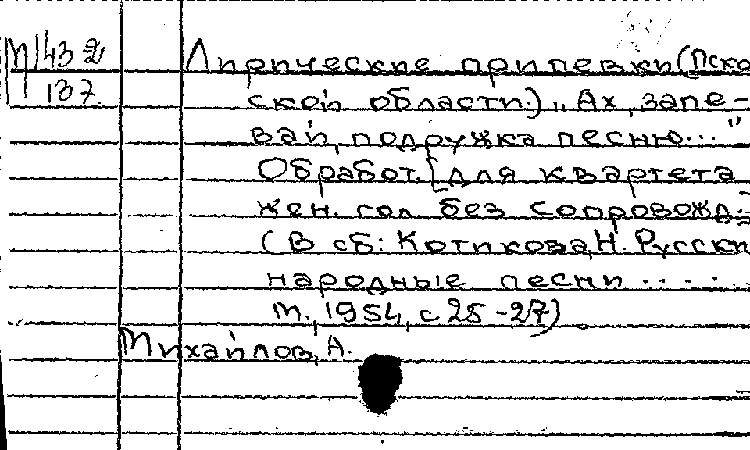 М 43 2
137
Лирические припевки (Пско
ской области.) „Ах, запе-
вай, подружка песню..."
Обработ. [для квартета
жен. гол без сопровожд.
(В сб: Котикова, Н. Русски
народные песни .....
М., 1954, с 25-27)
Михайлов, А.